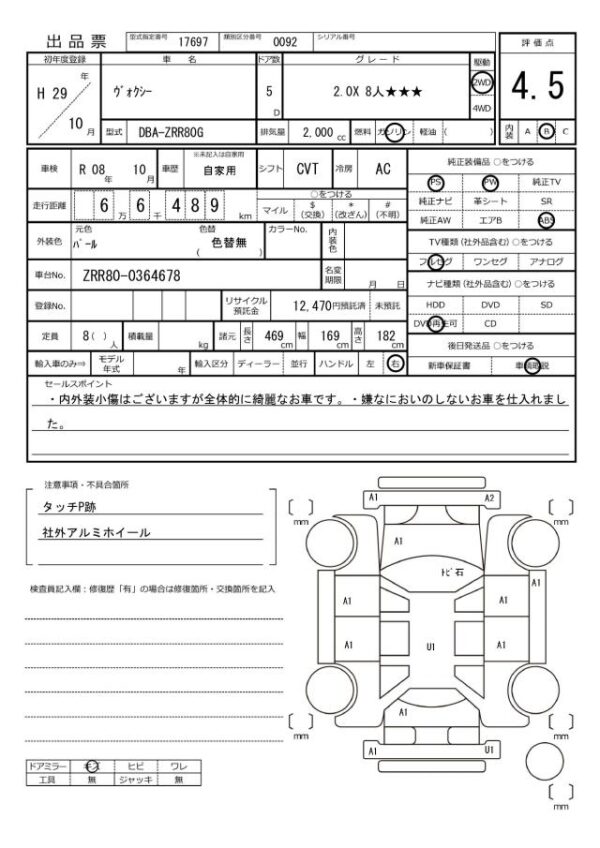 出品票
型式指定番号 17697 類別区分番号 0092 シリアル番号
評価点
4.5
内装 A B C
初年度登録 車名 ドア数 グレード 駆動
H 29 年 10 月
ヴォクシー
5 D
2.0X 8人★★★
2WD
4WD
型式 DBA-ZRR80G 排気量 2,000 cc 燃料 ガソリン 軽油 ( )
車検 R 08 年 10 月 車歴 ※未記入は自家用 自家用 シフト CVT 冷房 AC
走行距離 6 万 6 千 4 8 9 km
○をつける
マイル $(交換) *(改ざん) #(不明)
外装色 元色 パール 色替 色替無 ( ) カラーNo. 内装色
車台No. ZRR80-0364678 名変期限 月 日
登録No. リサイクル預託金 12,470円預託済 未預託
定員 8( )人 積載量 kg 諸元 長さ 469 cm 幅 169 cm 高さ 182 cm
輸入車のみ⇒ モデル年式 年 輸入区分 ディーラー 並行 ハンドル 左 右
純正装備品 ○をつける
PS PW 純正TV
純正ナビ 革シート SR
純正AW エアB ABS
TV種類(社外品含む)○をつける
フルセグ ワンセグ アナログ
ナビ種類(社外品含む)○をつける
HDD DVD SD
DVD再生可 CD
後日発送品 ○をつける
新車保証書 車輌取説
セールスポイント
・内外装小傷はございますが全体的に綺麗なお車です。・嫌なにおいのしないお車を仕入れまし
た。
注意事項・不具合箇所
タッチP跡
社外アルミホイール
検査員記入欄:修復歴「有」の場合は修復箇所・交換箇所を記入
ドアミラー キズ ヒビ ワレ
工具 無 ジャッキ 無
A1 A2
[ ] mm [ ] mm
A1
トビ石
A1 A1 A1
A1 U1 A1
A1
[ ] mm [ ] mm
A1 U1
[ ] mm